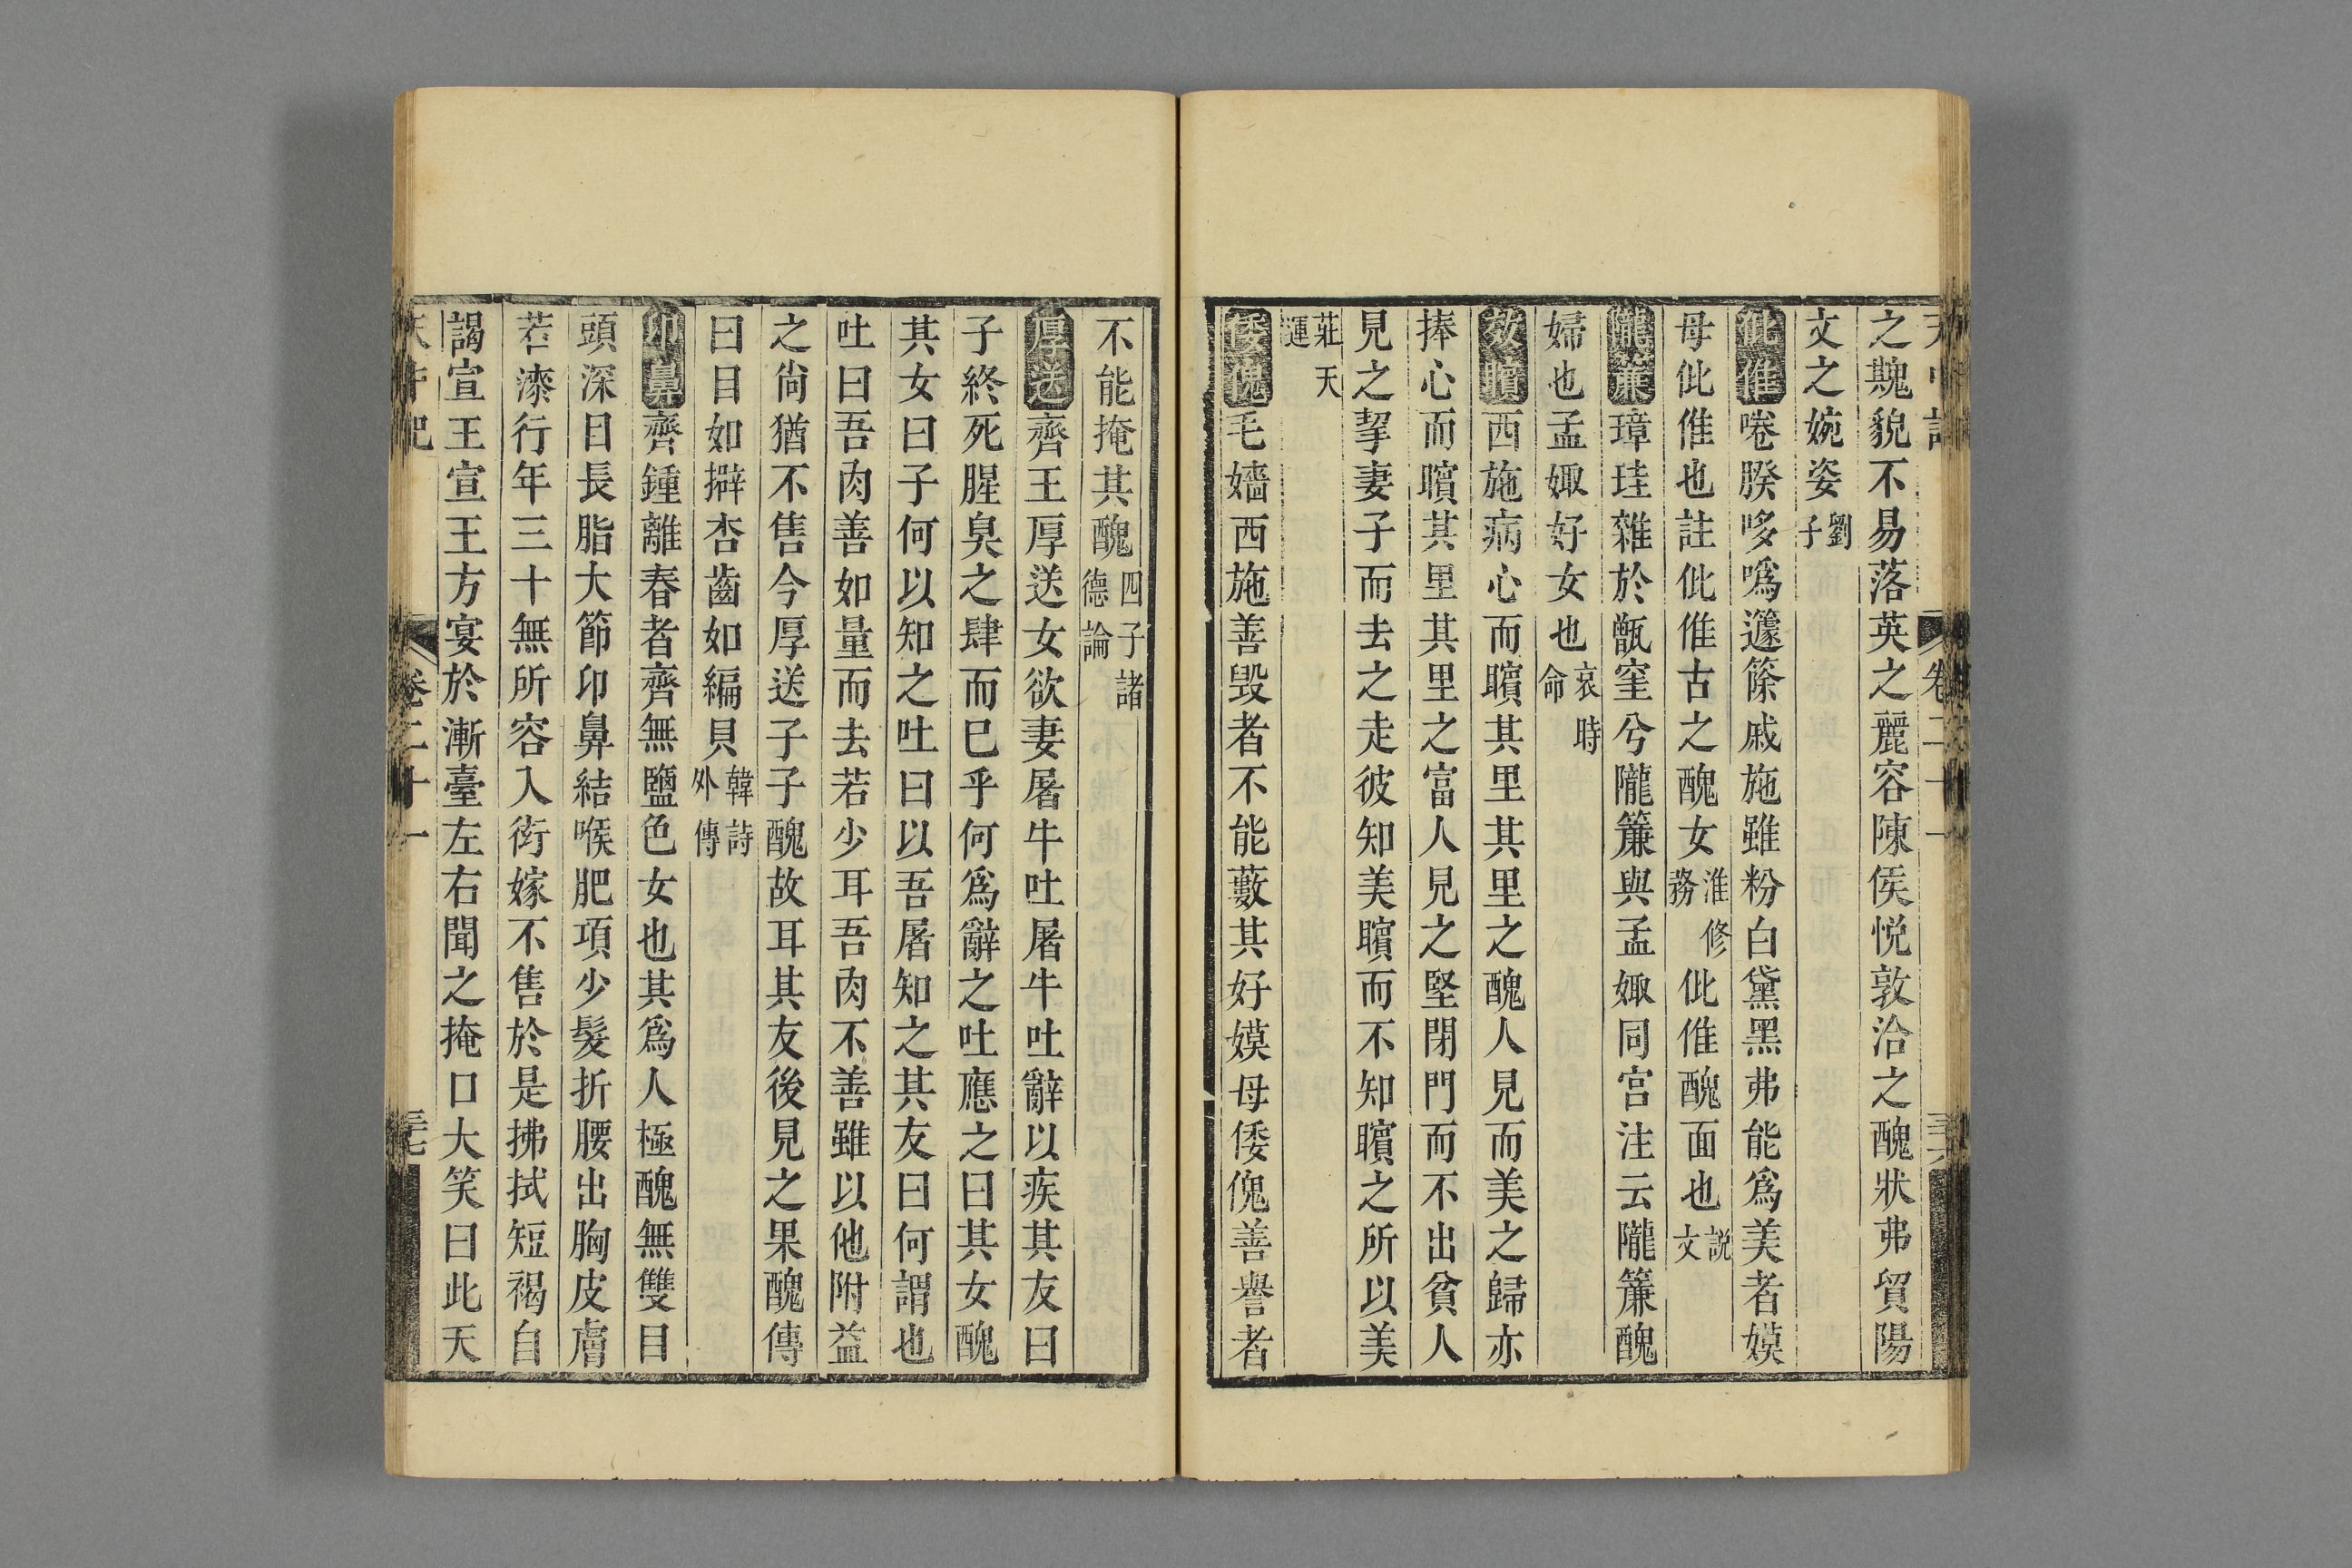 之䫏貌不易落英之麗容陳侯悦敦洽之醜狀弗貿陽
文之婉姿劉子
仳倠㗈䐰哆噅籧篨戚施雖粉白黛黑弗能爲美者嫫
母仳倠也註仳倠古之醜女淮修務仳倠醜面也説文
隴廉璋珪雜於甑窐兮隴簾與孟娵同宫注云隴簾醜
婦也孟娵好女也哀時命
效矉西施病心而矉其里其里之醜人見而美之歸亦
捧心而矉其里其里之富人見之堅閉門而不出貧人
見之挈妻子而去之走彼知美矉而不知矉之所以美
莊天運
倭傀毛嬙西施善毁者不能蔽其好嫫母倭傀善譽者
不能掩其醜四子諸德論
厚送齊王厚送女欲妻屠牛吐屠牛吐辭以疾其友曰
子終死腥臭之肆而巳乎何爲辭之吐應之曰其女醜
其女曰子何以知之吐曰以吾屠知之其友曰何謂也
吐曰吾肉善如量而去若少耳吾肉不善雖以他附益
之尚猶不售今厚送子子醜故耳其友後見之果醜傳
曰目如擗杏齒如編貝韓詩外傳
卬鼻齊鍾離春者齊無鹽色女也其爲人極醜無雙目
頭深目長脂大節卬鼻結喉肥項少髮折腰出胸皮膚
若漆行年三十無所容入衒嫁不售於是拂拭短褐自
謁宣王宣王方宴於漸臺左右聞之掩口大笑曰此天
卷二十一